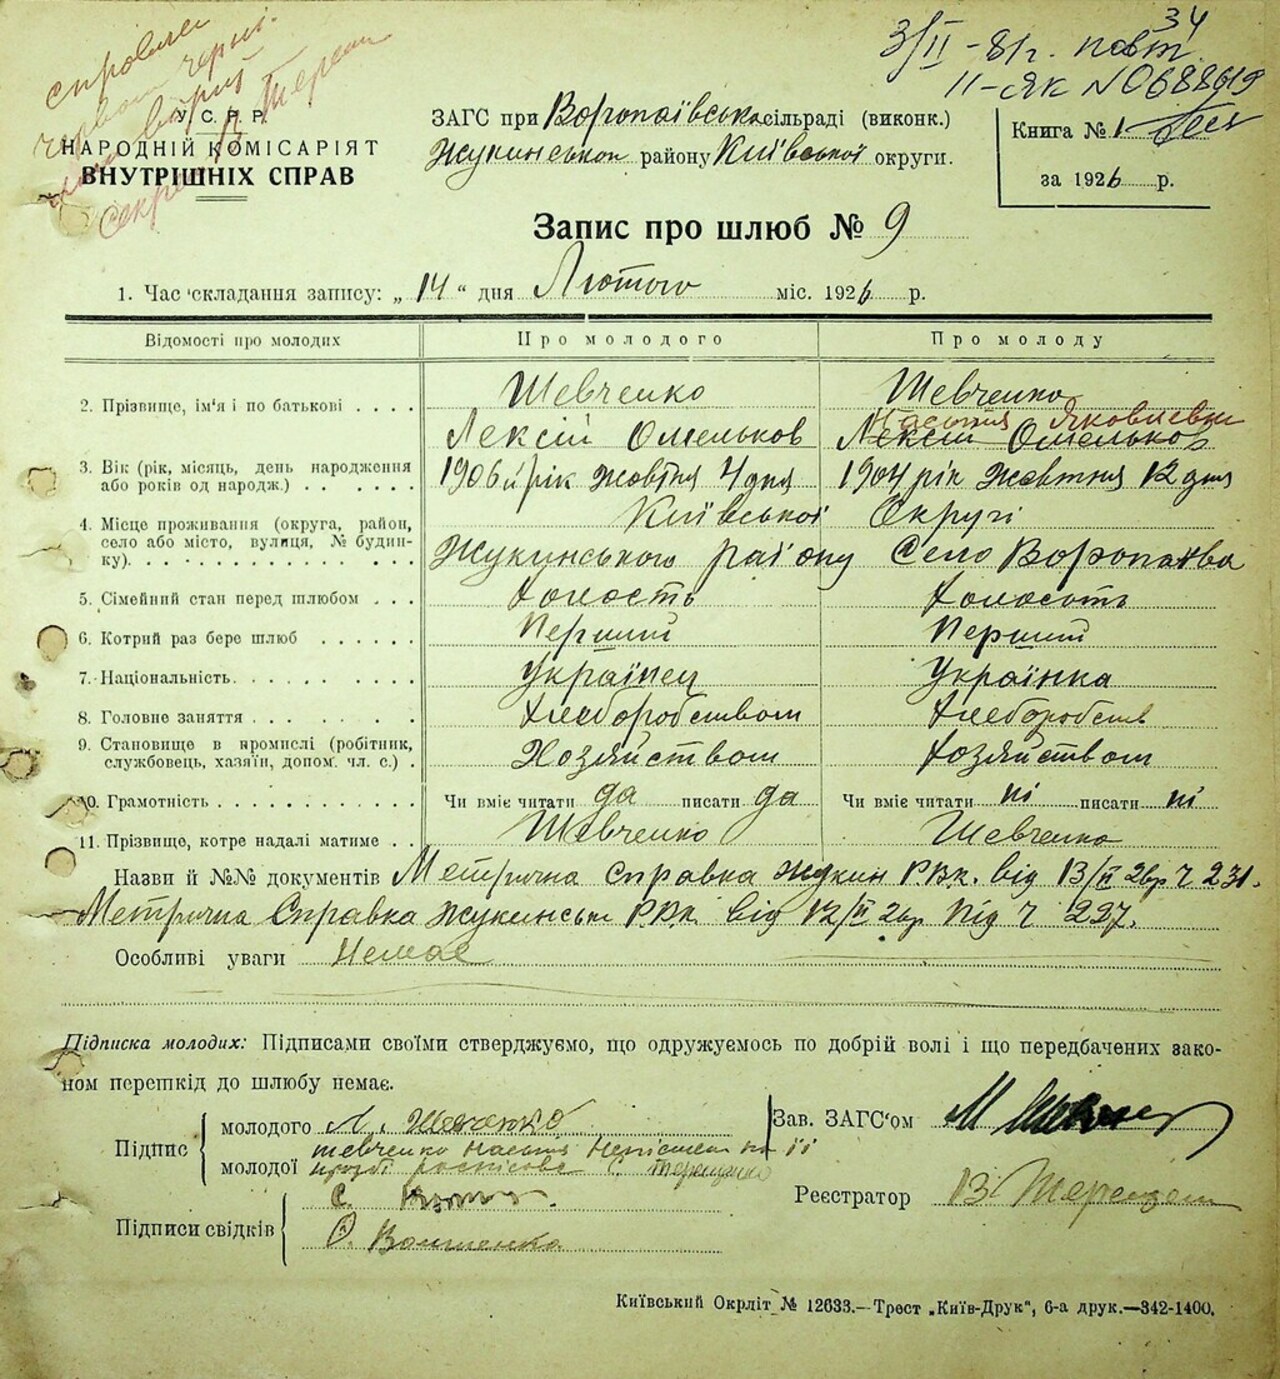 34
3/II -81г. повт
II-ЯК №0688619
У. С. Р. Р.
НАРОДНІЙ КОМІСАРІЯТ
ВНУТРІШНІХ СПРАВ
ЗАГС при Воропаївська сільраді (виконк.)
Жукинськом району Київської округи.
Книга № 1
за 1926 р.
Запис про шлюб № 9
1. Час складання запису: „14“ дня Лютого міс. 1926 р.
Відомості про молодих
Про молодого
Про молоду
2. Прізвище, ім'я і по батькові
Шевченко
Лексій Омельков
Шевченко
Настія Яковлевна
Лексій Омельков
3. Вік (рік, місяць, день народження
або років од народж.)
1906 й рік Жовтня 4 дня
1904 рік Жовтня 12 дня
4. Місце проживання (округа, район,
село або місто, вулиця, № будин-
ку).
Київської Округі
Жукинського району Село Воропаєва
5. Сімейний стан перед шлюбом
Холость
Холость
6. Котрий раз бере шлюб
Перший
Перший
7. Національність
Українец
Українка
8. Головне заняття
Хлеборобством
Хлеборобств
9. Становище в промислі (робітник,
службовець, хазяїн, допом. чл. с.)
Хозяйством
Хозяйством
10. Грамотність
Чи вміє читати да писати да
Чи вміє читати ні писати ні
11. Прізвище, котре надалі матиме
Шевченко
Шевченко
Назви й №№ документів Метрична Справка Жукин Р.В.к. від 13/II 26р Ч 231.
Метрична Справка Жукинськ Р.В.К. від 12/II 26р Під Ч 227.
Особливі уваги Немає
Підписка молодих: Підписами своїми стверджуємо, що одружуємось по добрій волі і що передбачених зако-
ном перешкід до шлюбу немає.
Підпис
молодого Л. Шевченко
молодої Шевченко Настія Неписмен на її
прозбі росписова С. Терещенко
Зав. ЗАГС'ом
Реєстратор В. Терещенко
Підписи свідків
С.
О.
Київський Окрліт № 12633.—Трест „Київ-Друк“, 6-а друк.—342-1400.